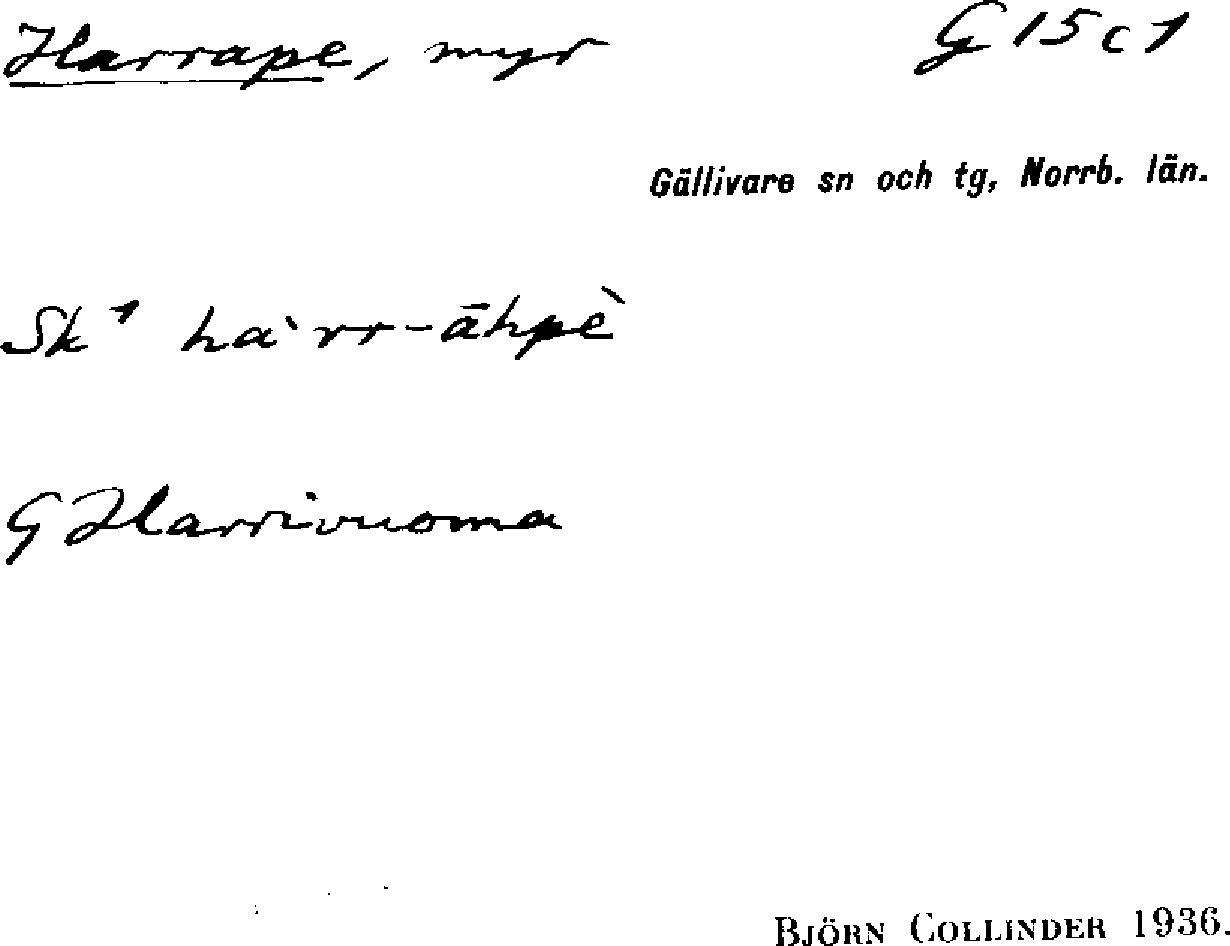 Harrape, myr G 15 c 1
Gällivare sn och tg, Norrb. län.
Sk¹ ha`rr-āhpè
G Harrivuoma
BJÖRN COLLINDER 1936.